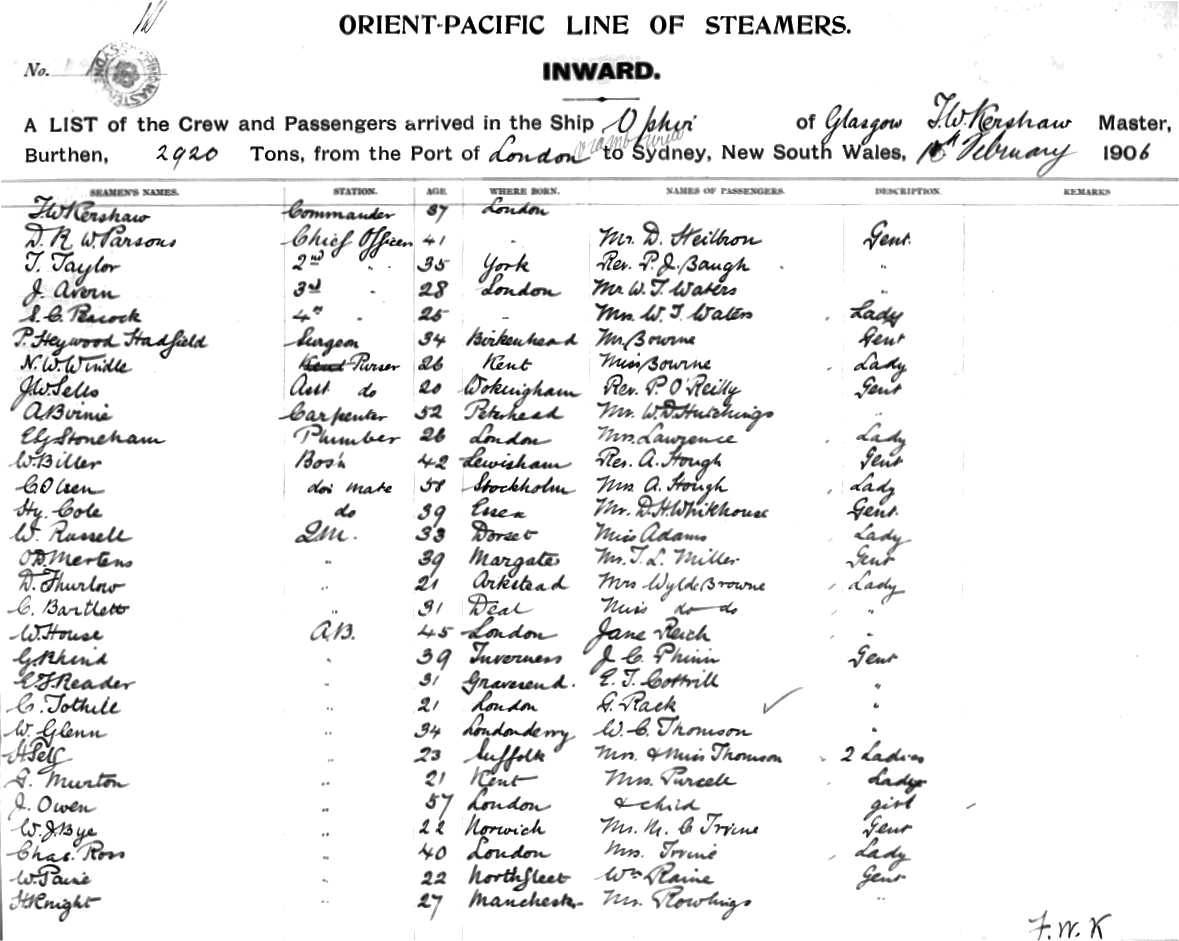 ORIENT-PACIFIC LINE OF STEAMERS.
No.
INWARD.
A LIST of the Crew and Passengers arrived in the Ship Ophir of Glasgow T.W. Kershaw Master,
Burthen, 2920 Tons, from the Port of London to Sydney, New South Wales, February 1906
SEAMEN'S NAMES. STATION. AGE WHERE BORN. NAMES OF PASSENGERS. DESCRIPTION. REMARKS
T.W Kershaw Commander 37 London
D. R W. Parsons Chief Officer 41 " Mr. D. Heilbron Gent.
T. Taylor 2nd " 35 York Rev. P. J. Baugh "
J. Avern 3rd " 28 London Mr W. T. Waters "
S. C. Peacock 4th " 25 " Mrs W. T. Waters Lady
P. Heywood Hadfield Surgeon 34 Birkenhead Mr Bowrne Gent
N. W. Windle Purser 26 Kent Miss Bowrne Lady
J.W. Sells Asst do 20 Wokingham Rev. P. O'Reilly Gent
A Birnie Carpenter 52 Peterhead Mr. W. D. Hutchings "
E G Stoneham Plumber 26 London Mrs. Lawrence Lady
W. Biller Bos'n 42 Lewisham Rev. A. Hough Gent
C Olsen dos mate 58 Stockholm Mrs A. Hough Lady
Hy. Cole do 39 Essex Mr. D. H. Whikhouse Gent.
W. Russell Q.M. 33 Dorset Miss Adams Lady
O D. Mertens " 39 Margate Mr. T. L. Miller Gent
D. Thurlow " 21 Arkstead Mrs Wylde Browne Lady
C. Bartlett " 31 Deal Miss do do "
W. House A.B. 45 London Jane Reich "
G. Rhind " 39 Inverness J. C. Phinn Gent
E. F. Reader " 31 Gravesend. E. T. Cottrill "
C. Tothill " 21 London G. Rack "
W. Glenn " 34 Londonderry W. C. Thomson "
H Pelf " 23 Suffolk Mrs. & Miss Thomson 2 Ladies
G. Murton " 21 Kent Mrs. Purcell Lady
J. Owen " 57 London & child girl
W. J. Bye " 22 Norwich Mr. M. C Irvine Gent
Chas. Ross " 40 London Mrs. Irvine Lady
W. Paine " 22 Northfleet Wm Raine Gent
H Knight " 27 Manchester Mr. Rowlings "
F. W. K